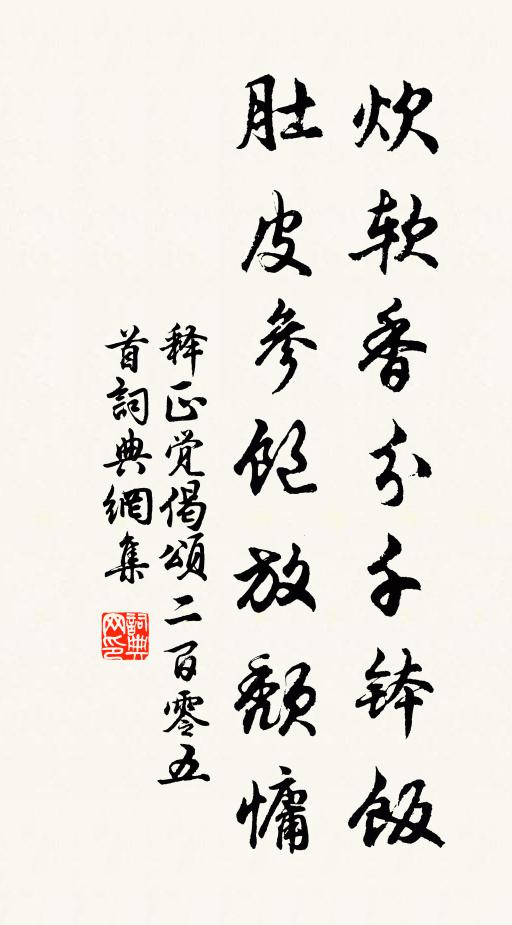 炊软香分千钵饭
肚皮参饱放颓慵
释正觉偈颂二百零五
首詞典網集
詞典网印